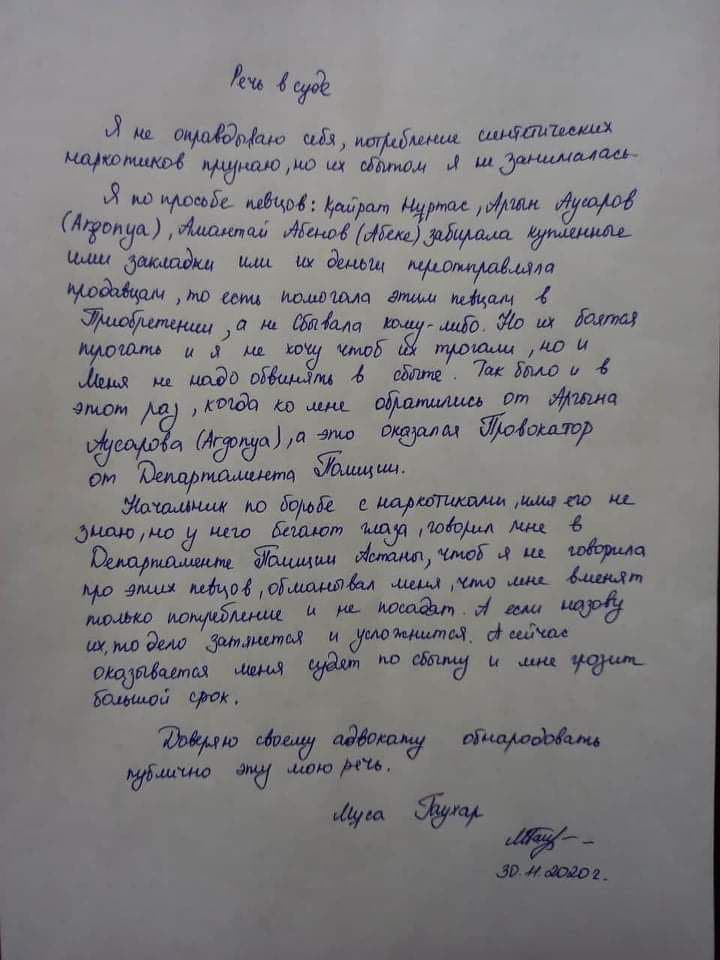 Речь в суде
Я не оправдываю себя, потребление синтетических
наркотиков признаю, но их сбытом я не занималась.
Я по просьбе певцов: Қайрат Нұртас, Аргын Аусаров
(Агдопуа), Амантай Абенов (Абеке) забирала купленные
ими закладки или их деньги переотправляла
продавцам, то есть помогала этим певцам в
Приобретении, а не сбывала кому-либо. Но их боятся
трогать и я не хочу чтоб их трогали, но и
меня не надо обвинять в сбыте. Так было и в
этот раз, когда ко мне обратились от Аргына
Аусарова (Агдопуа), а это оказался Провокатор
от Департамента Полиции.
Начальник по борьбе с наркотиками, имя его не
знаю, но у него бегают глаза, говорил мне в
Департаменте Полиции Астаны, чтоб я не говорила
про этих певцов, обманывал меня, что мне вменят
только потребление и не посадят. А если назову
их, то дело затянется и усложнится. А сейчас
оказывается меня судят по сбыту и мне грозит
большой срок.
Доверяю своему адвокату обнародовать
публично эту мою речь.
Муса Гаухар
30.11.2020г.